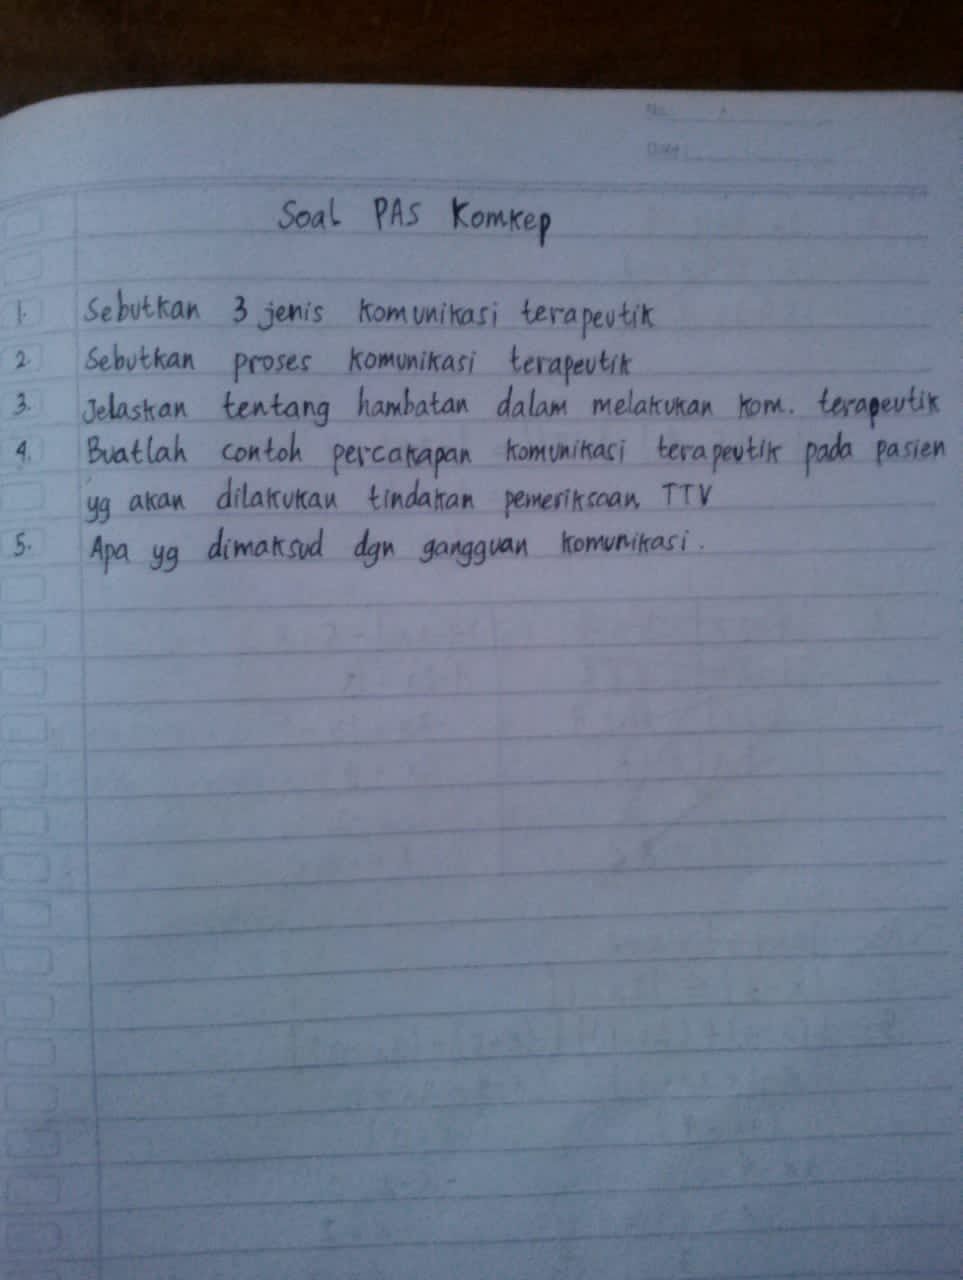 No.
Date
Soal PAS Komkep
1. Sebutkan 3 jenis komunikasi terapeutik
2. Sebutkan proses komunikasi terapeutik
3. Jelaskan tentang hambatan dalam melakukan kom. terapeutik
4. Buatlah contoh percakapan komunikasi terapeutik pada pasien
yg akan dilakukan tindakan pemeriksaan TTV
5. Apa yg dimaksud dgn gangguan komunikasi.